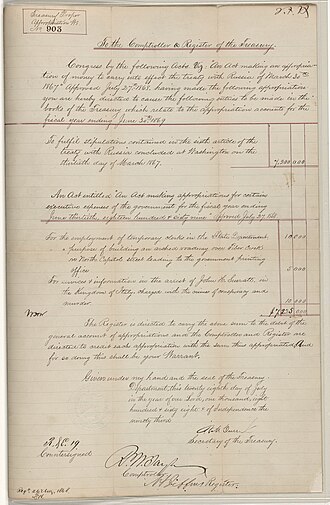 Treasury Proper
Appropriation Wt.
No 903
To the Comptroller & Register of the Treasury.
Congress by the following Acts Viz: An Act making an appropria-
tion of money to carry into effect the treaty with Russia of March 30th
1867." Approved July 27th 1868. having made the following appropriations
you are hereby directed to cause the following entries to be made in the
books of the Treasury which relate to the appropriations accounts for the
fiscal year ending June 30th 1869
To fulfil stipulations contained in the sixth article of the
treaty with Russia concluded at Washington on the
thirtieth day of March 1867.
7,200,000
An Act entitled "An Act making appropriations for certain
executive expenses of the government for the fiscal year ending
June thirtieth, eighteen hundred & sixty nine" Approved July 27 1868
For the employment of temporary clerks in the State Department
10,000
purpose of building an arched roadway over Tiber Creek
on North Capitol street leading to the government printing
office
5,000
For services & information in the arrest of John H. Surratt, in
the Kingdom of Italy, charged with the crimes of conspiracy and
murder.
10,000
$7225,000
The Register is directed to carry the above sum to the debit of the
general account of appropriations and the Comptroller and Register are
directed to credit each appropriation with the sum thus appropriated And
for so doing this shall be your Warrant.
Given under my hand and the seal of the Treasury
Department, this twenty eighth day of July
in the year of our Lord, one thousand, eight
hundred & sixty eight & of Independence the
ninety third
Secretary of the Treasury.
Countersigned
R. W. Tayler
Comptroller
Register.